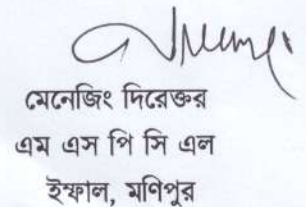 মেনেজিং দিরেক্তর
এম এস পি সি এল
ইম্ফাল, মণিপুর